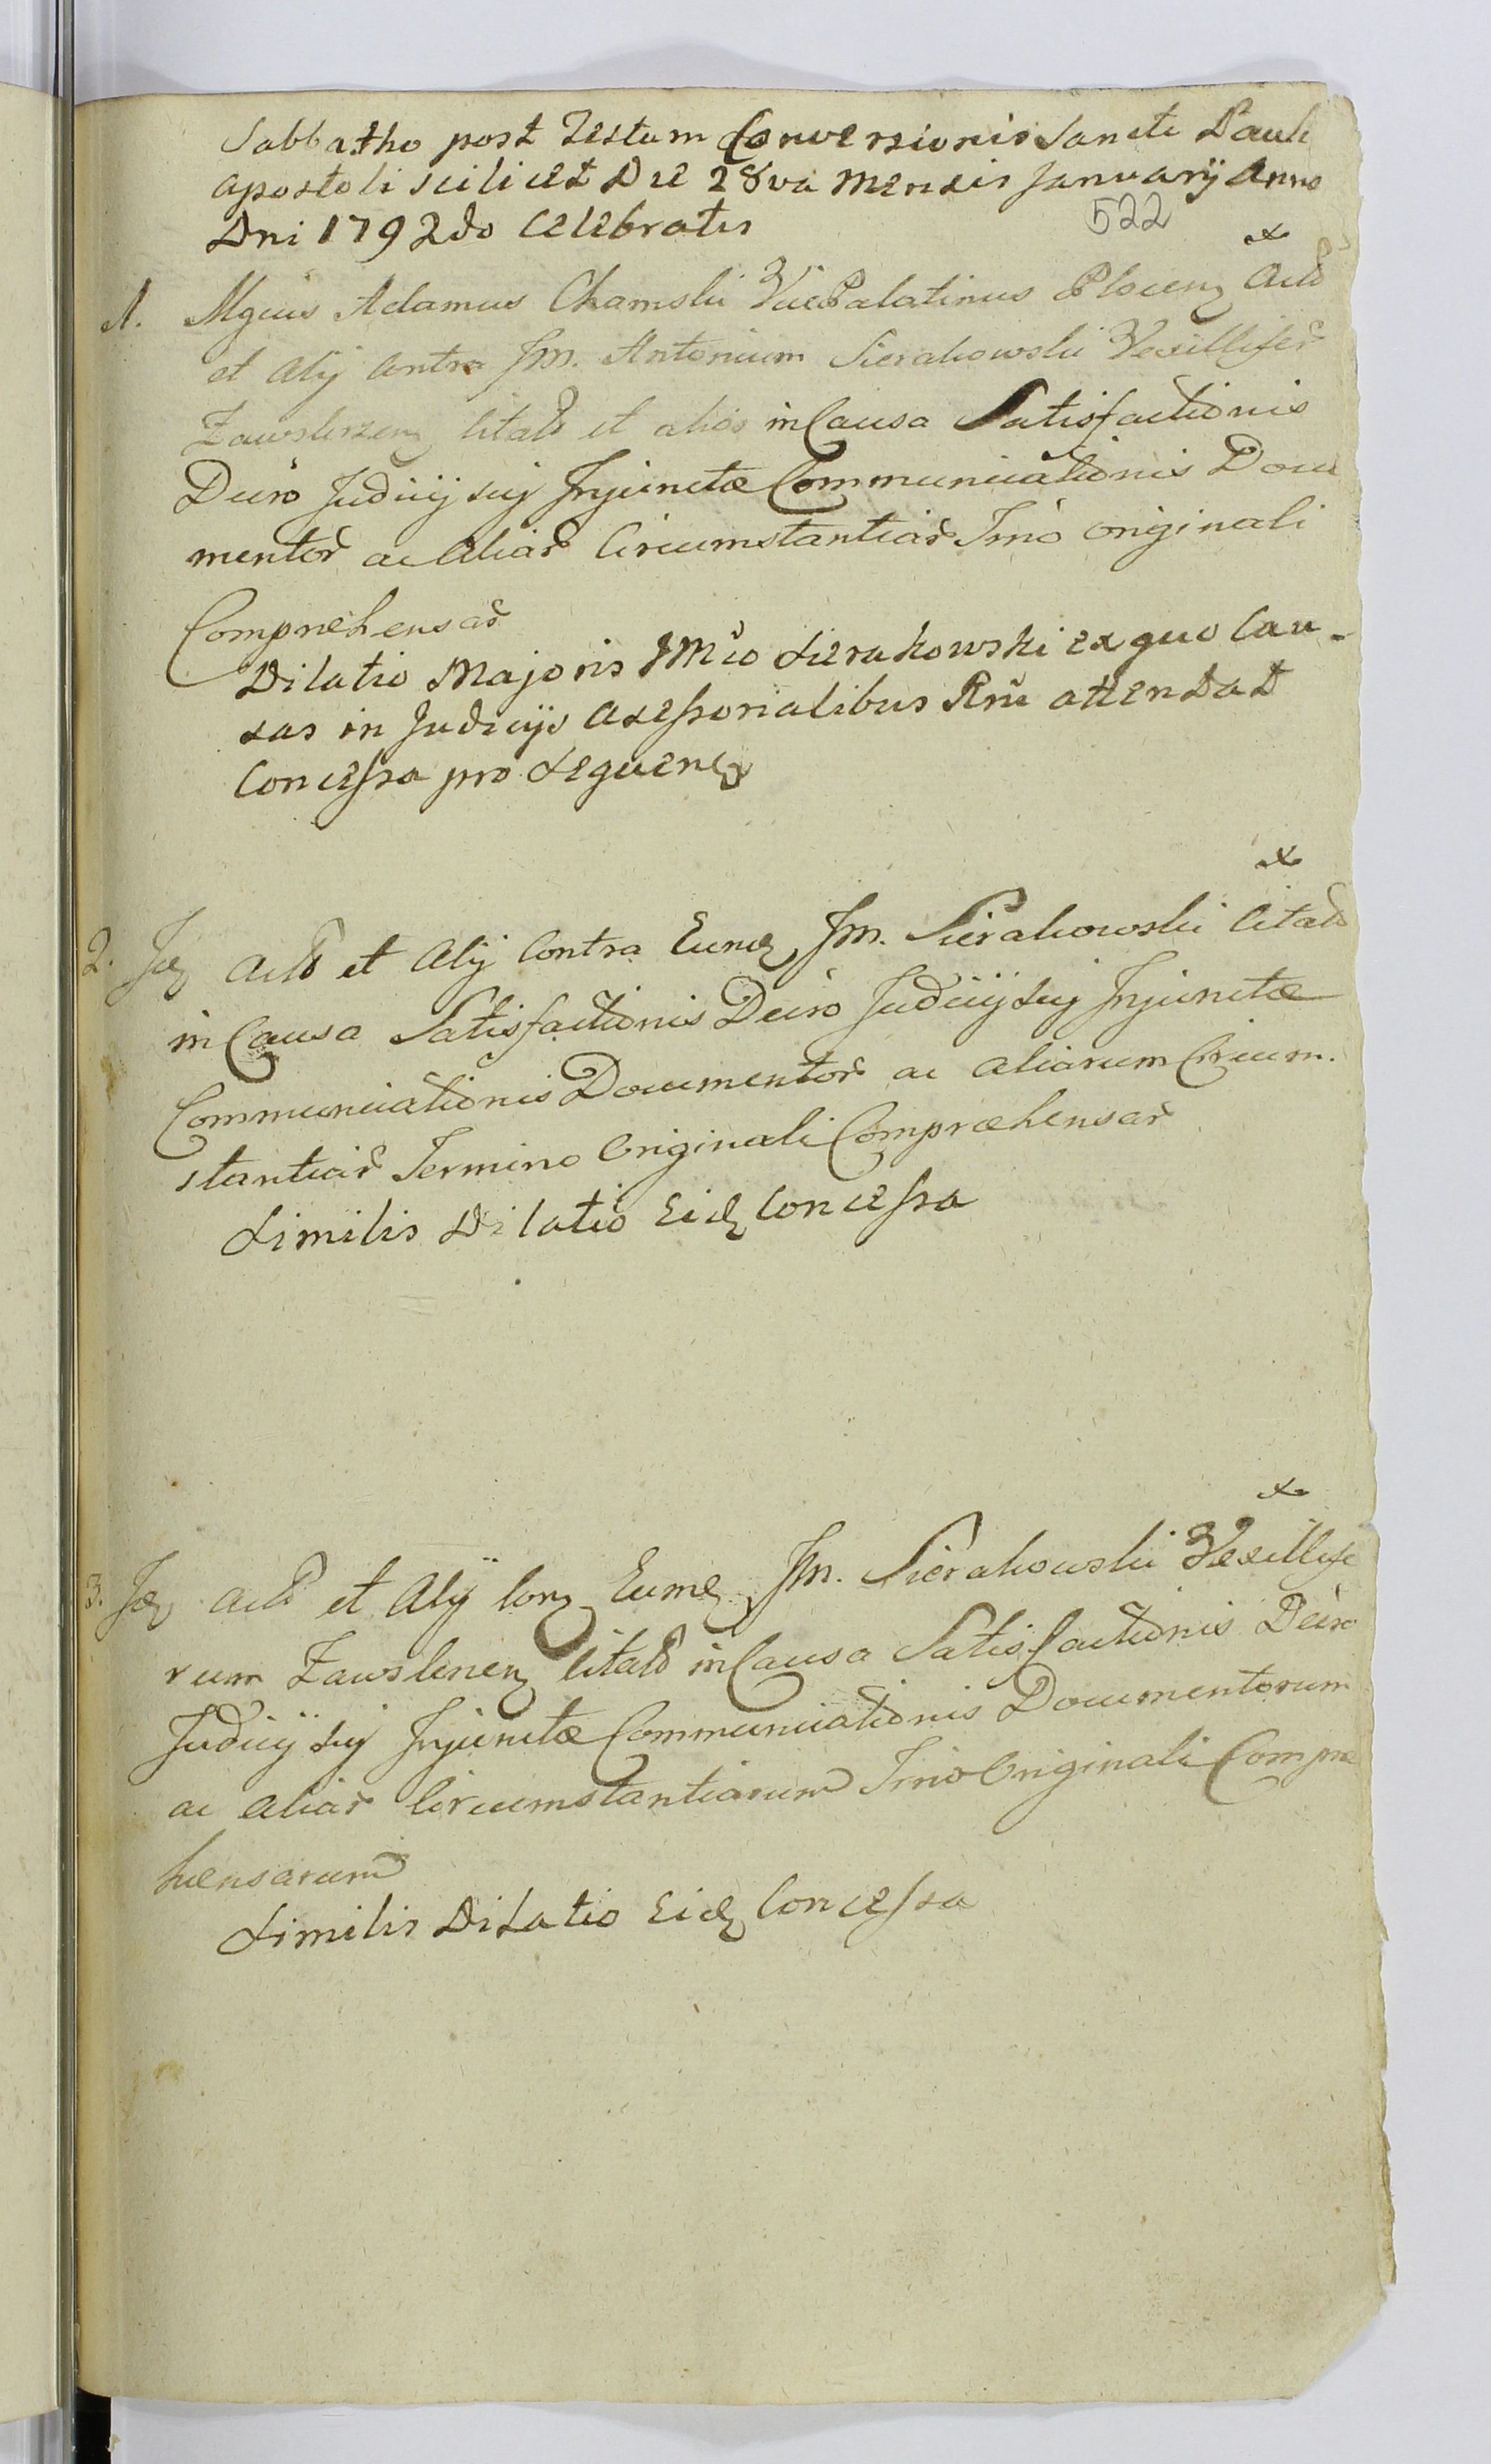 Sabbatho post Festum Conversionis Sancti Pauli
Apostoli scilicet Die 28va Mensis Januarÿ Anno
Dni 1792do Celebratis
522
x
1. Mgcus Adamus Chamski VicePalatinus Plocen Actor
et Alÿ Contra Jm. Antonium Sierakowski Vexillifer
Zawskrzen Citato et alios in Causa Satisfactionis
Decro Judicÿ sui Injunctæ Communicationis Docu
mentor ac Aliar Circumstantiar Tmo originali
Comprehensar
Dilatio Majoris JMco Sierakowski ex quo Cau-
sas in Judicÿs Asessorialibus Rni attendat
Concessa pro sequen
x
2. Id Actor et Alÿ Contra Eund Jm. Sierakowski Citato
in Causa Satisfactionis Decro Judicÿ sui Injunctæ
Communicationis Documentor ac aliarum Circum.
stantiar Termino Originali Compræhensar
Similis Dilatio Eid Concessa
x
3. Id Actor et Alÿ Con Eund Jm. Sierakowski Vexillife
rum Zawskrzen Citato in Causa Satisfactionis Decro
Judicÿ sui Injunctæ Communicationis Documentorum
ac Aliar Circumstantiarum Tmo Originali Compre
hensarum
Similis Dilatio Eid Concessa